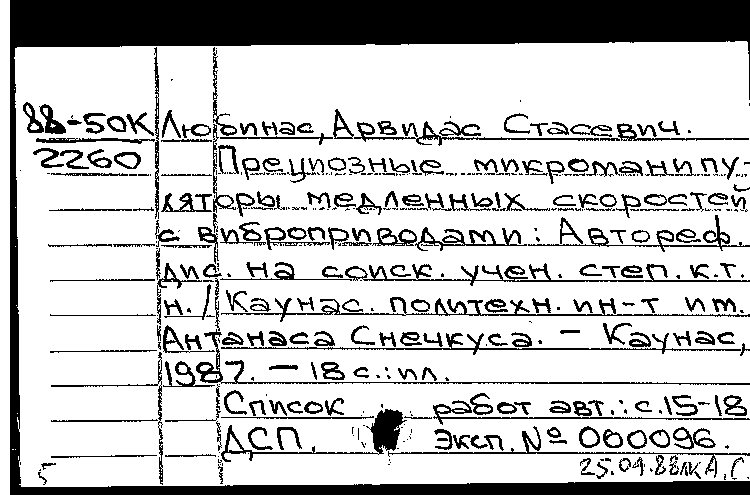 88-50К Любинас, Арвидас Стасевич.
2260 Прецизозные микроманипу-
ляторы медленных скоростей
с виброприводами: Автореф.
дис. на соиск. учен. степ. к.т.
н. / Каунас. политехн. ин-т им.
Антанаса Снечкуса. - Каунас,
1987. - 18 с.: ил.
Список работ авт.: с. 15-18
ДСП. Экз. № 000096.
5 25.04.88